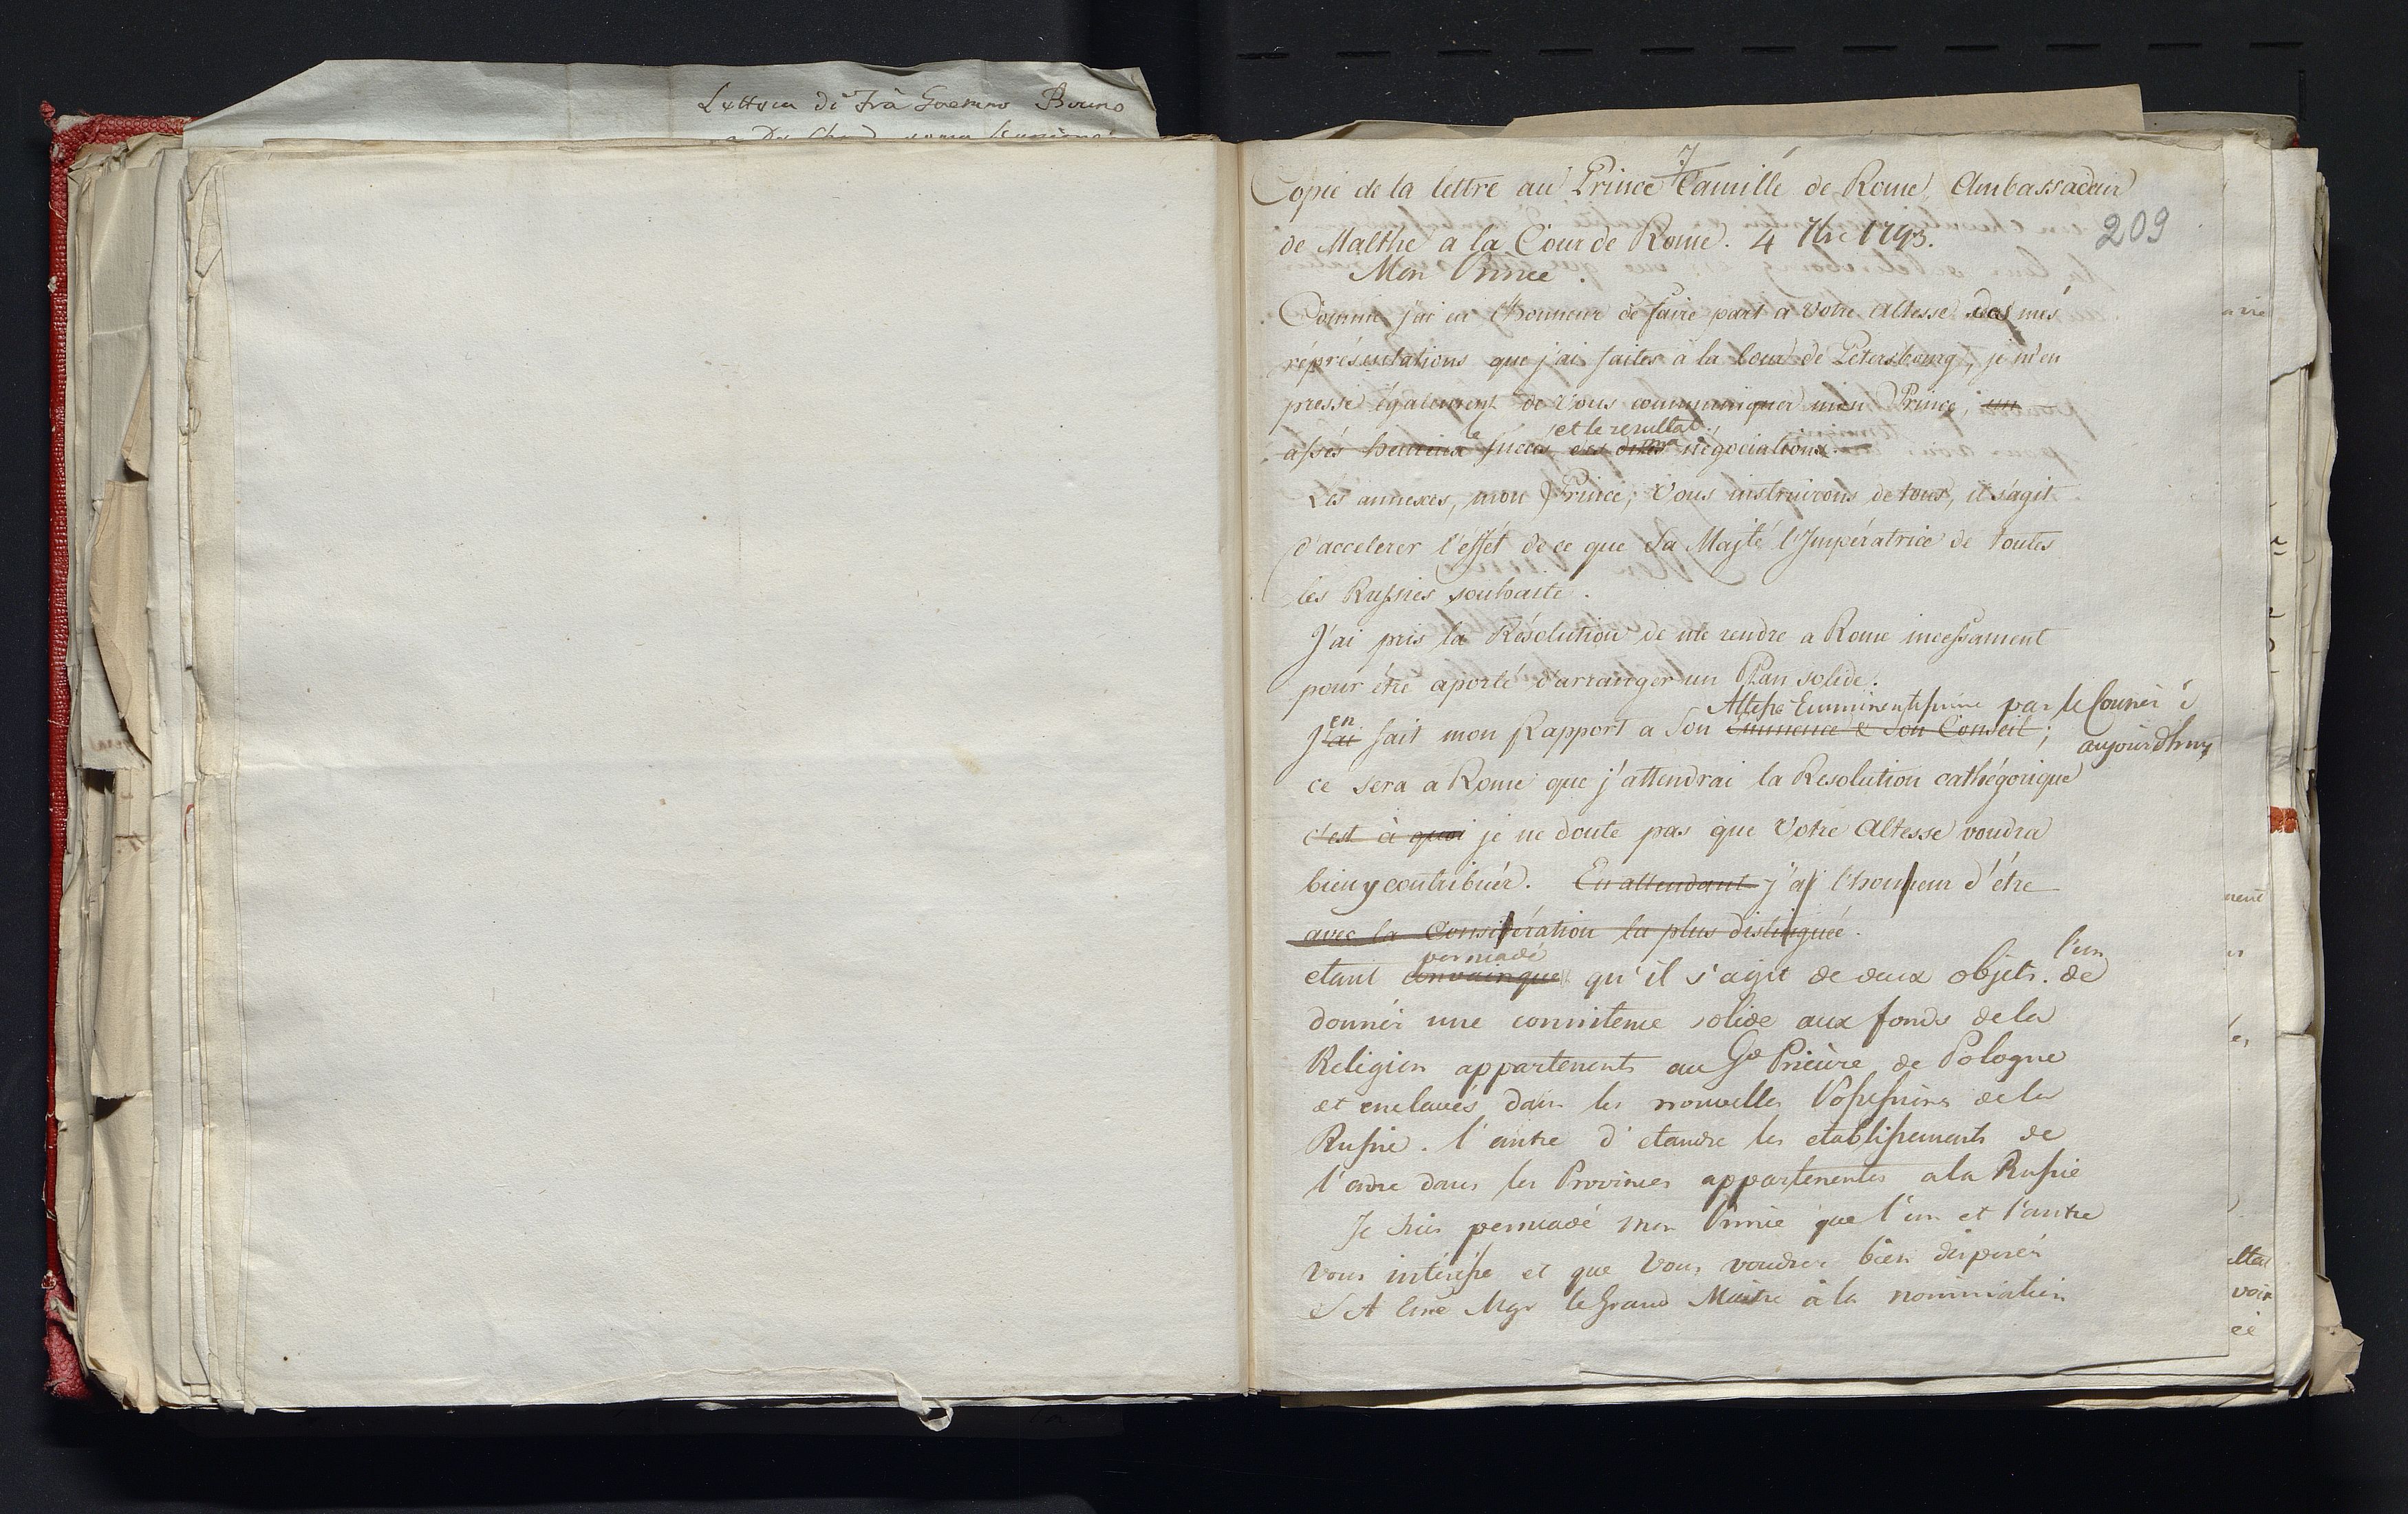 Lettera di Frà Gaetano Bruno
7
Copie de la lettre au Prince Camille de Rome, Ambassadeur
209
de Malthe a la Cour de Rome. 4 7bre 1793.
Mon Prince.
Comme j'ai eu l'honneur de faire part a Votre Altesse des mes
réprésentations que j'ai faites à la Cour de Petersbourg, je m'en
presse également de Vous communiquer mon Prince, un
et le resultat
assés heureux le succes des dittes négociations.
Les annexes, mon Prince, Vous instruirons de tous, it s'agit
d'accelerer l'éffét de ce que Sa Majté l'Impératrice de toutes
les Russies souhaite.
J'ai pris la Résolution de me rendre a Rome incessament
pour étre aporté d'arranger un Plan solide.
Altesse Eminentissime par le Courier d'
en
J'ai fait mon Rapport a Son Eminence & Son Conseil;
aujourdhuy
ce sera a Rome que j'attendrai la Resolution cathégorique
c'est à quoi je ne doute pas que Votre Altesse voudra
bien y contribuér. En attendant j'ai l'honneur d'étre
avec la Considération la plus distinguée.
persuadé
l'un
etant convainque qu'il s'agit de deux objets. de
donnér une consistence solide aux fonds de la
Religion appartenents au Gd Prieure de Pologne
et enclavés dans les nouvelles Possessions de la
Russie. l'autre d'etandre les etablissements de
l'ordre dans les Provinces appartenentes a la Russie
Je suis persuadé mon Prince que l'un et l'autre
vous intérésse et que Vous voudrez bien disposér
S A Eme Mgr le Grand Maitre à la nomination